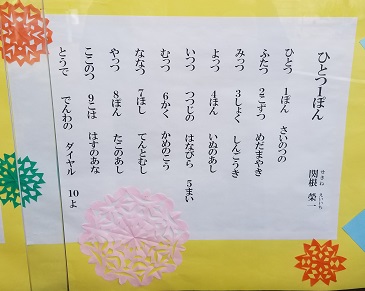 ひとつ1ぽん
関根 榮一
せきね えいいち
ひとつ 1ぽん さいのつの
ふたつ 2こずつ めだまやき
みっつ 3しょく しんごうき
よっつ 4ほん いぬのあし
いつつ つつじの はなびら 5まい
むっつ 6かく かめのこう
ななつ 7ほし てんとむし
やっつ 8ぽん たこのあし
ここのつ 9こは はすのあな
とうで でんわの ダイヤル 10よ